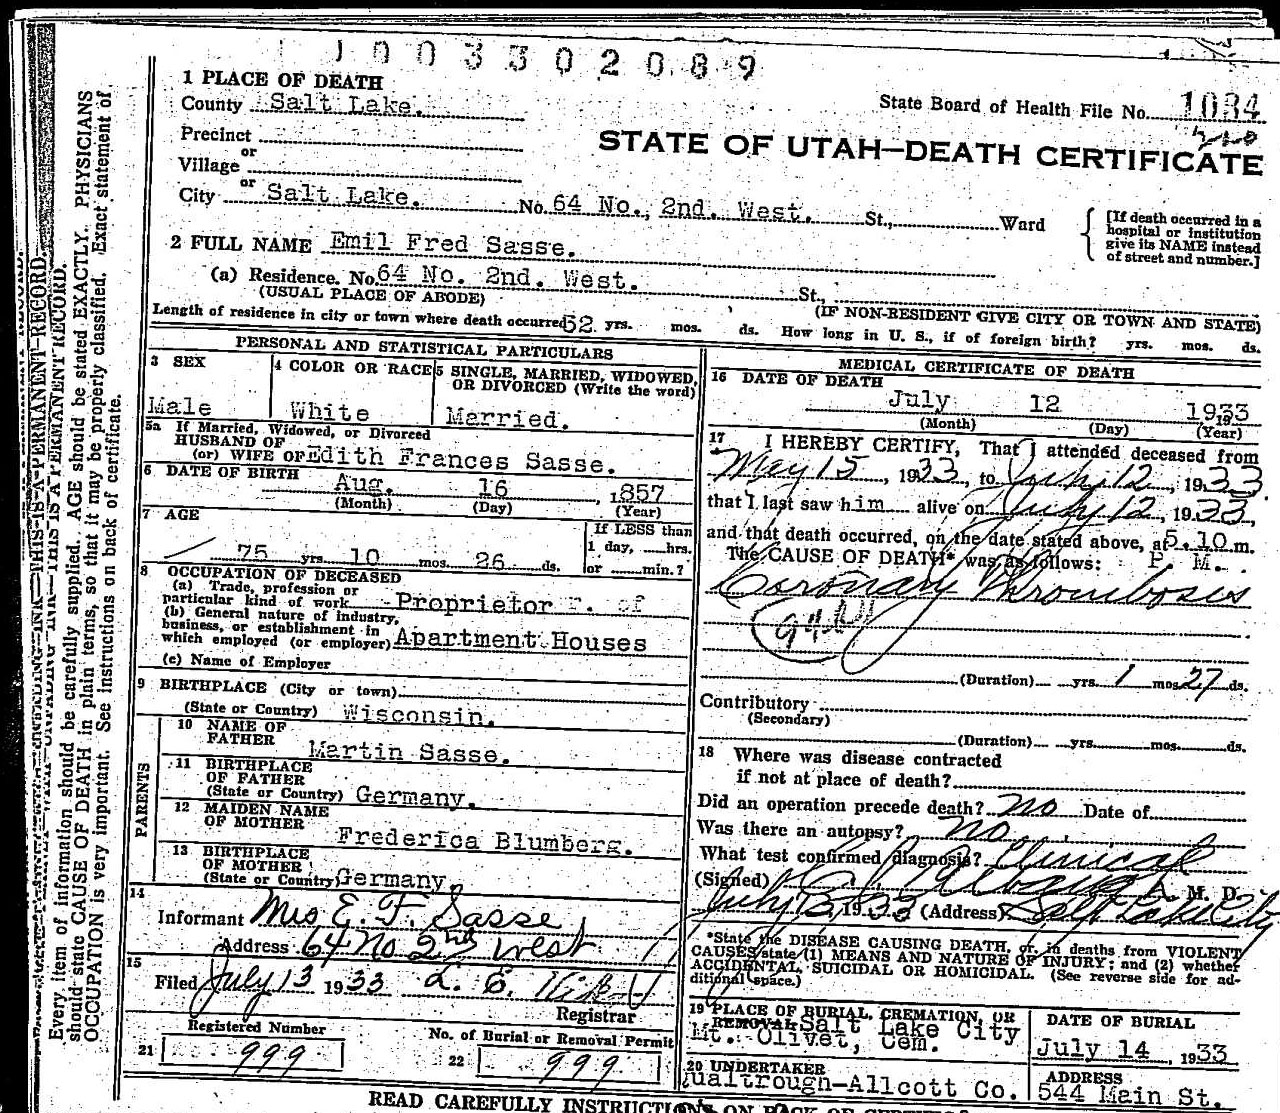 1003302089
1 PLACE OF DEATH
County Salt Lake.
State Board of Health File No. 1034
Precinct
or
Village
STATE OF UTAH—DEATH CERTIFICATE
or
City Salt Lake. No. 64 No., 2nd. West. St., Ward
[If death occurred in a
hospital or institution
give its NAME instead
of street and number.]
2 FULL NAME Emil Fred Sasse.
(a) Residence. No. 64 No. 2nd. West. St.,
(USUAL PLACE OF ABODE)
(IF NON-RESIDENT GIVE CITY OR TOWN AND STATE)
Length of residence in city or town where death occurred 52 yrs. mos. ds. How long in U. S., if of foreign birth? yrs. mos. ds.
PERSONAL AND STATISTICAL PARTICULARS
3 SEX
Male
4 COLOR OR RACE
White
5 SINGLE, MARRIED, WIDOWED,
OR DIVORCED (Write the word)
Married.
5a If Married, Widowed, or Divorced
HUSBAND OF
(or) WIFE OF Edith Frances Sasse.
6 DATE OF BIRTH
Aug. 16, 1857
(Month) (Day) (Year)
7 AGE
75 yrs. 10 mos. 26 ds.
If LESS than
1 day, hrs.
or min.?
8 OCCUPATION OF DECEASED
(a) Trade, profession or
particular kind of work Proprietor r. of
(b) General nature of industry,
business, or establishment in
which employed (or employer) Apartment Houses
(c) Name of Employer
9 BIRTHPLACE (City or town)
(State or Country) Wisconsin.
PARENTS
10 NAME OF
FATHER Martin Sasse.
11 BIRTHPLACE
OF FATHER
(State or Country) Germany.
12 MAIDEN NAME
OF MOTHER Frederica Blumberg.
13 BIRTHPLACE
OF MOTHER
(State or Country) Germany.
14
Informant Mrs E. F. Sasse
Address 64 No 2nd West
15
Filed July 13 1933 L. E.
Registrar
Registered Number
21 999
No. of Burial or Removal Permit
22 999
MEDICAL CERTIFICATE OF DEATH
16 DATE OF DEATH
July 12 1933
(Month) (Day) (Year)
17 I HEREBY CERTIFY, That I attended deceased from
May 15, 1933, to July 12, 1933
that I last saw him alive on July 12, 1933,
and that death occurred, on the date stated above, at 5.10 m.
The CAUSE OF DEATH* was as follows: P. M.
Coronary Thrombosis
(Duration) yrs. 1 mos. 27 ds.
Contributory
(Secondary)
(Duration) yrs. mos. ds.
18 Where was disease contracted
if not at place of death?
Did an operation precede death? No Date of
Was there an autopsy? No
What test confirmed diagnosis? Clinical
(Signed) M. D.
July 13, 1933 (Address) Salt Lake City
*State the DISEASE CAUSING DEATH, or, in deaths from VIOLENT
CAUSES state (1) MEANS AND NATURE OF INJURY; and (2) whether
ACCIDENTAL, SUICIDAL OR HOMICIDAL. (See reverse side for ad-
ditional space.)
19 PLACE OF BURIAL, CREMATION, OR
REMOVAL Salt Lake City
Mt. Olivet, Cem.
DATE OF BURIAL
July 14, 1933
20 UNDERTAKER
Qualtrough-Allcott Co.
ADDRESS
544 Main St.
Every item of information should be carefully supplied. AGE should be stated EXACTLY. PHYSICIANS
should state CAUSE OF DEATH in plain terms, so that it may be properly classified. Exact statement of
OCCUPATION is very important. See instructions on back of certificate.